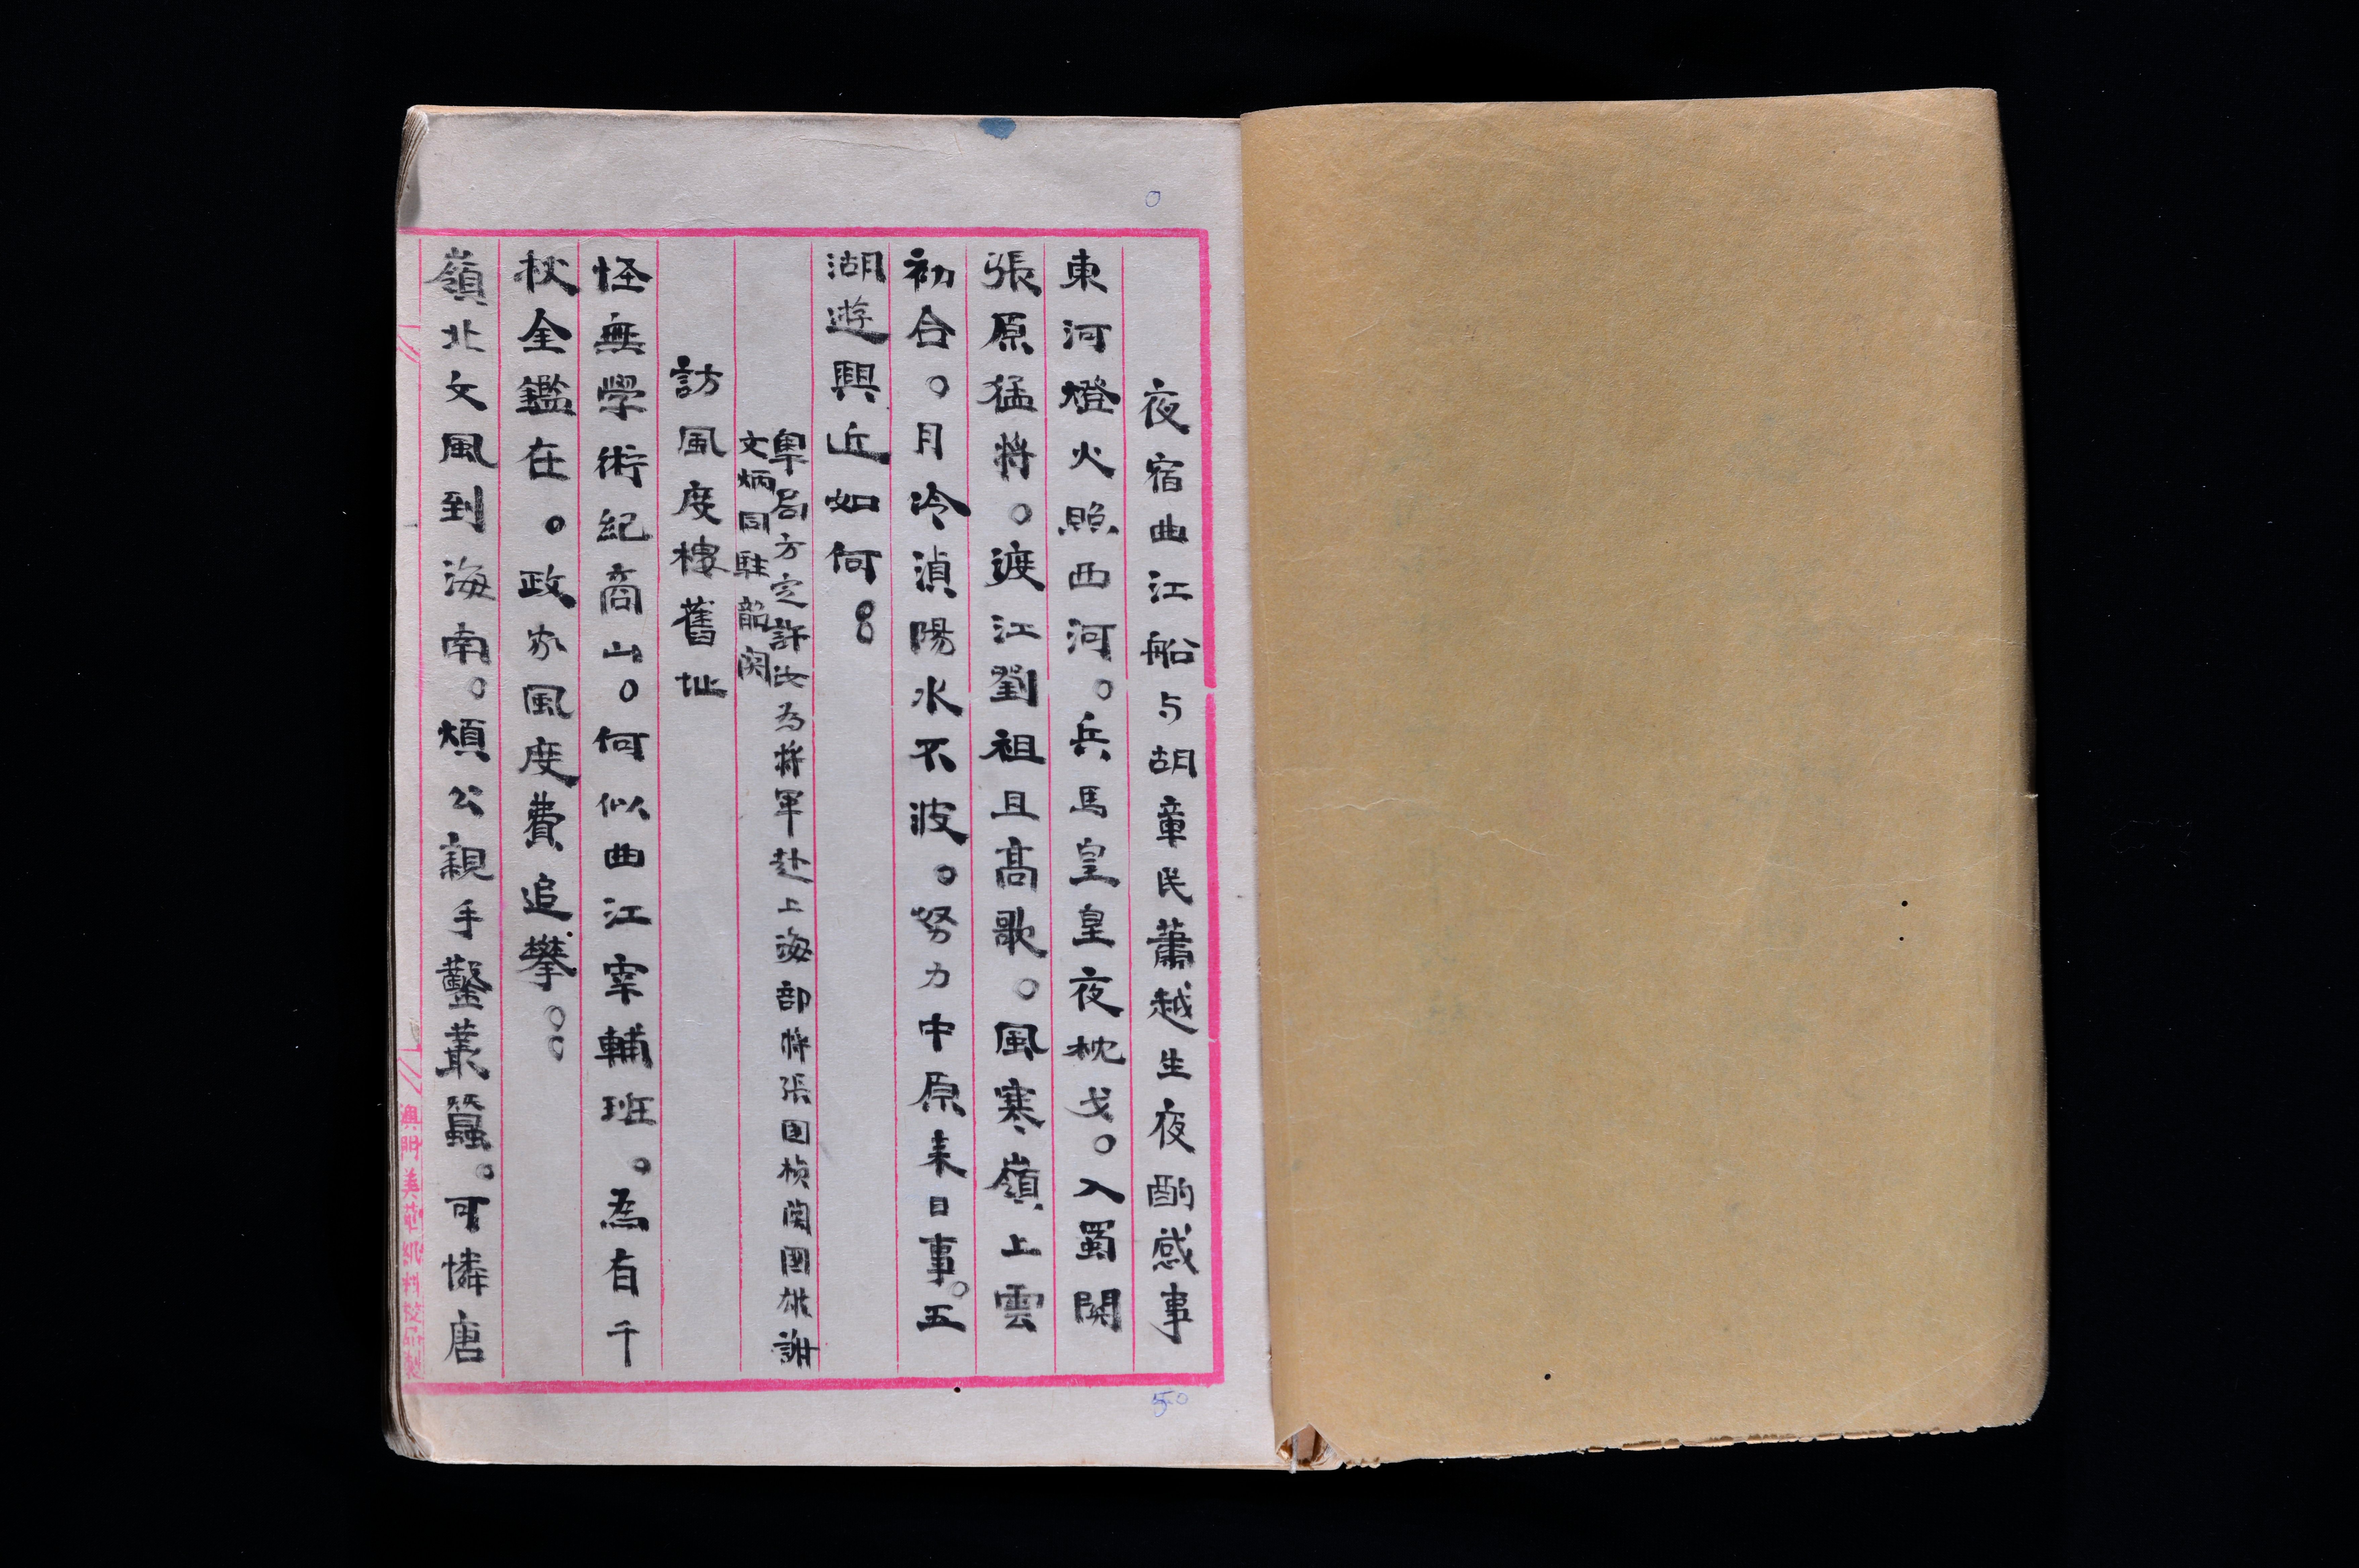 夜宿曲江船与胡章民蕭越生夜酌感事
東河燈火照西河。兵馬皇皇夜枕戈。入蜀関
張原猛將。渡江劉祖且高歌。風寒嶺上雲
初合。月冷湞陽水不波。努力中原来日事。五
湖遊興近如何
粤局方定許汝为將軍赴上海部将張囯楨関國雄謝
文炳同駐韶関
訪風度樓舊址
怪無學術紀商山。何似曲江宰輔班。為有千
秋全鑑在。政家風度費追攀。
嶺北文風到海南。煩公親手鑿叢蠶。可憐唐
澳門美華紙料教品製
50